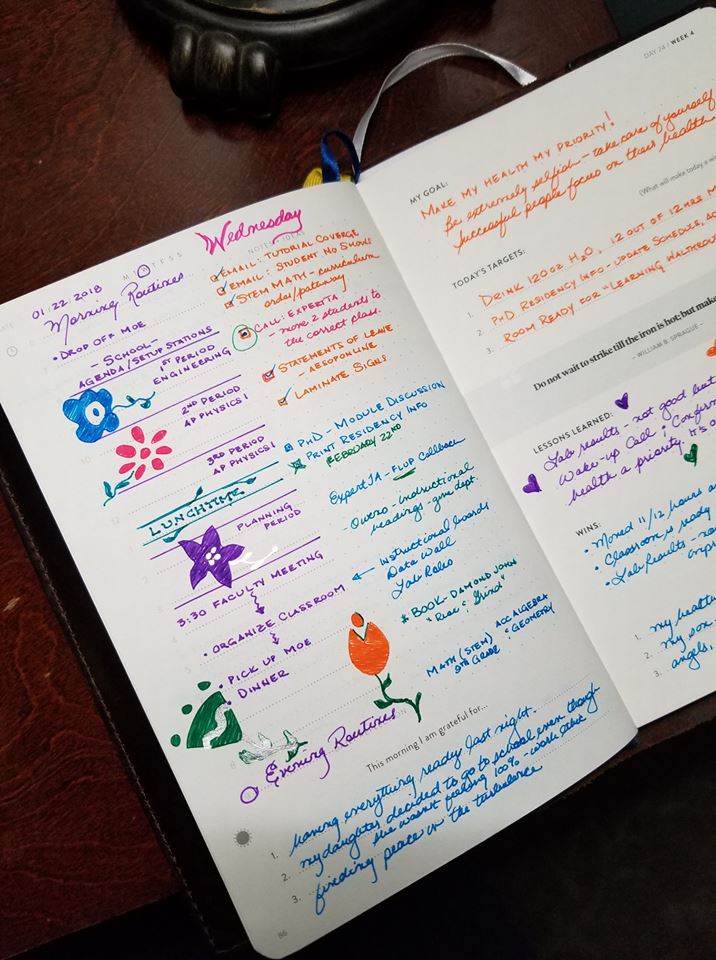 Wednesday
NOTES / IDEAS
M T W T F S S
01.22.2018
Morning Routines
• DROP OFF MOE
- SCHOOL -
AGENDA/SETUP STATIONS
1ST PERIOD
ENGINEERING
2ND PERIOD
AP PHYSICS I
3RD PERIOD
AP PHYSICS I
LUNCHTIME
PLANNING
PERIOD
3:30 FACULTY MEETING
• ORGANIZE CLASSROOM
• PICK UP MOE
• DINNER
Evening Routines
EMAIL: TUTORIAL COVERGE
EMAIL: STUDENT NO SHOWS
STEM MATH - curriculum
order/pathway
CALL: EXPERTTA
- move 2 students to
the correct class.
STATEMENTS OF LENE
- AESOPONLINE
LAMINATE SIGNS
PHD - MODULE DISCUSSION
PRINT RESIDENCY INFO
FEBRUARY 22ND
Expert TA - FLUP Callback
instructional
readings - give dept.
Instructional boards
Data wall
Lab Roles
* BOOK - DAMOND JOHN
"Rise & Grind"
MATH (STEM) ACC ALGEBRA
9TH GRADE • GEOMETRY
This morning I am grateful for...
1. having everything ready last night.
2. my daughter decided to go to school even though
she wasn't feeling 100% - work ethic
3. finding peace in the turbulence
86
DAY 24 / WEEK 4
MY GOAL:
MAKE MY HEALTH MY PRIORITY!
Be extremely selfish - take care of yourself
Successful people focus on their health
(What will make today a
TODAY'S TARGETS:
1. DRINK 120oz H2O, 12 OUT OF 12 HRS
2. PHD RESIDENCY INFO - UPDATE SCHEDULE,
3. ROOM READY FOR "LEARNING
Do not wait to strike till the iron is hot; but make
- WILLIAM B. SPRAGUE -
LESSONS LEARNED:
Lab results - not good but
Wake-up Call: Confirm
health a priority. It's
WINS:
• Moved 11/12 hours
• Classroom is ready
• Lab Results -
1. my health
2. my son,
3. angels,